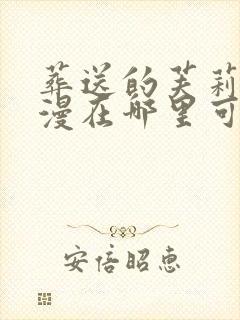 葬送的芙莉
漫在哪里可
安倍昭惠